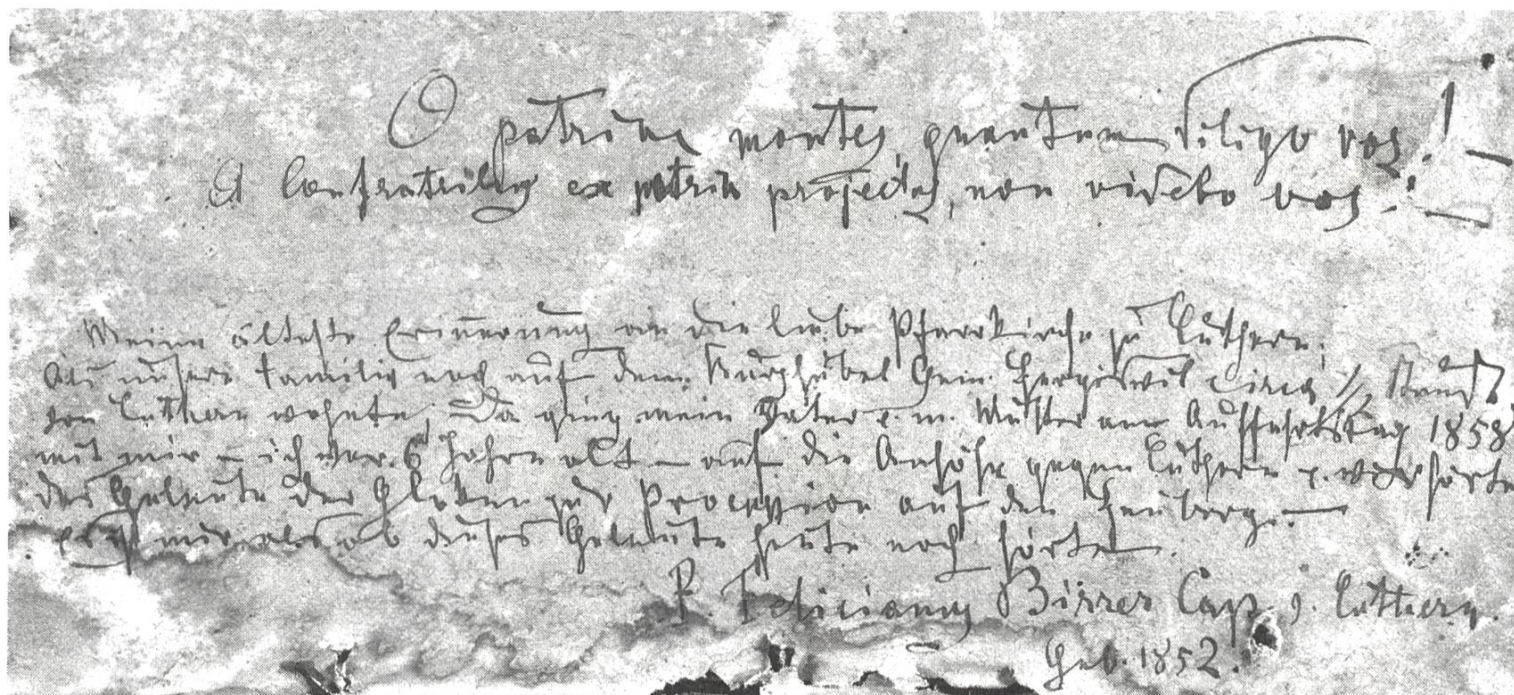 O patriae montes, quantum diligo vos! —
A Confratribus ex patria projectus, non videbo vos! —
Meine älteste Erinnerung an die liebe Pfarrkirche zu Luthern.
Als unsere Familie noch auf dem Gem. Hergiswil circa Stund
von Luthern wohnte, Da ging mein Vater u. m. Mutter am Auffahrtstag 1858
mit mir – ich war 6 Jahre alt – auf die Anhöhe gegen Luthern u. wir hörten
das Geläute der Gloken zur Procession auf den Heuberg. —
als ob dieses Geläute heute noch hörte.
P. Felicianus Birrer Cap. v. Luthern.
Geb. 1852.